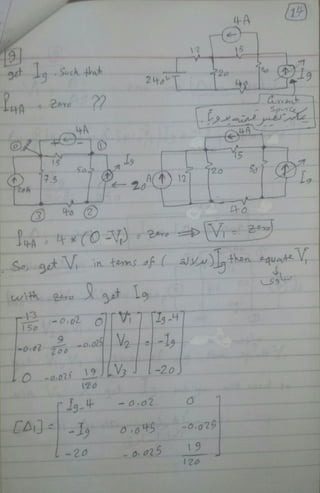 14
9
get Ig. such that
P4A = zero ??
4A
12
15
240V
20
50
40
Ig
Current
Source
4A
0
1
15
7.5
50
Ig
20A
3
40
2
4A
15
20A
12
20
50
Ig
40
P4A = 4 * (0 - V1) = zero ⇒ V1 = zero
So, get V1 in terms of ( بدلالة ) Ig then equate V1
تساوي
with zero & get Ig
13/150 -0.02 0 V1 Ig-4
-0.02 9/200 -0.025 V2 = -Ig
0 -0.025 19/120 V3 -20
[Δ1] =
Ig-4 -0.02 0
-Ig 0.045 -0.025
-20 -0.025 19/120